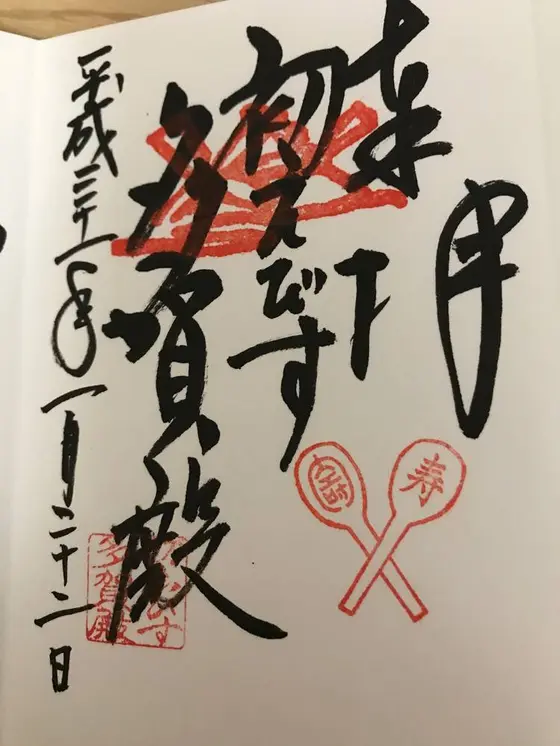 奉拝
初えびす
多賀殿
平成三十一年一月二十二日
寿
えびす
多賀殿